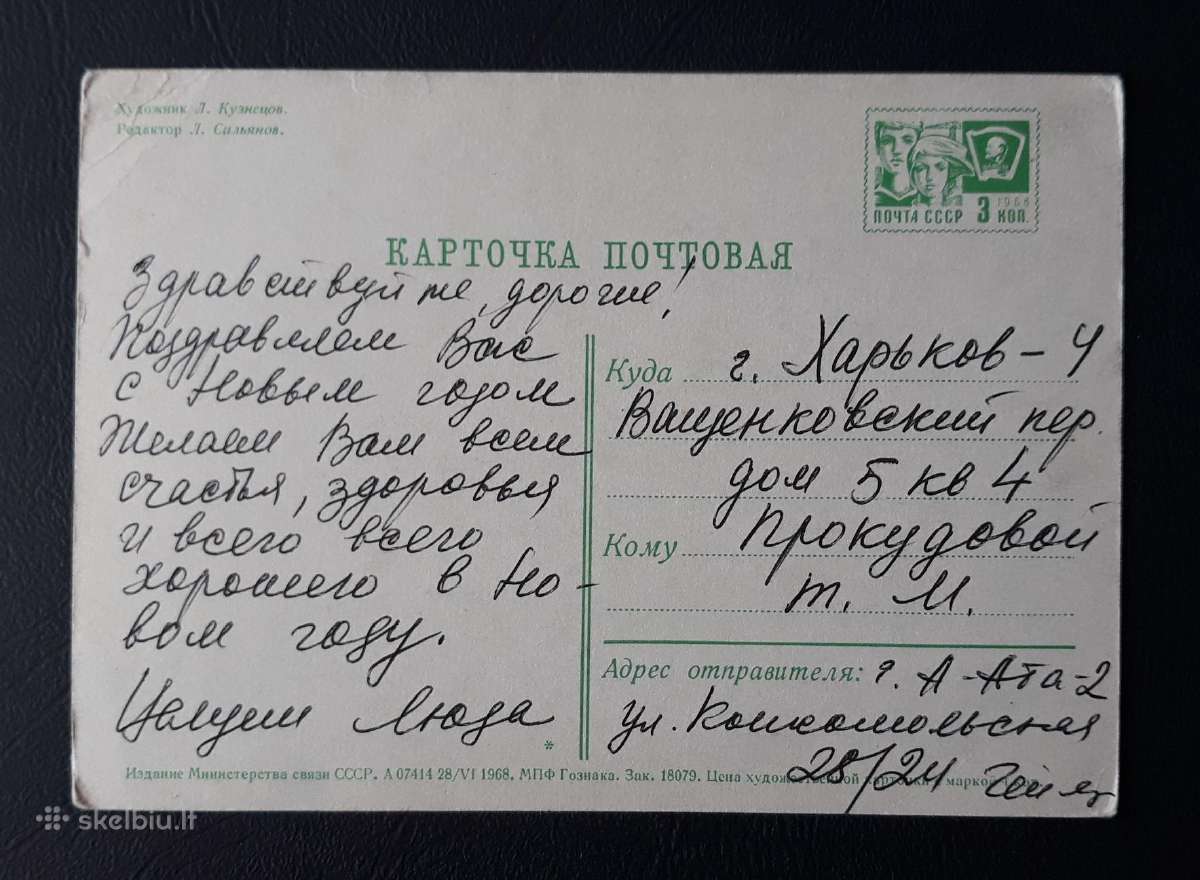 Художник Л. Кузнецов.
Редактор Л. Сальянов.
1968
ПОЧТА СССР 3 КОП.
КАРТОЧКА ПОЧТОВАЯ
Здравствуйте, дорогие!
Поздравляем Вас
с Новым годом
Желаем Вам всем
счастья, здоровья
и всего всего
хорошего в Но-
вом году.
Целуем Люда
Куда г. Харьков-4
Ващенковский пер.
дом 5 кв 4
Кому Прокудовой
Т. М.
Адрес отправителя: г. А-Ата-2
ул. Комсомольская
28/24
*
Издание Министерства связи СССР. А 07414 28/VI 1968. МПФ Гознака. Зак. 18079. Цена художественной карточки с маркой
skelbiu.lt